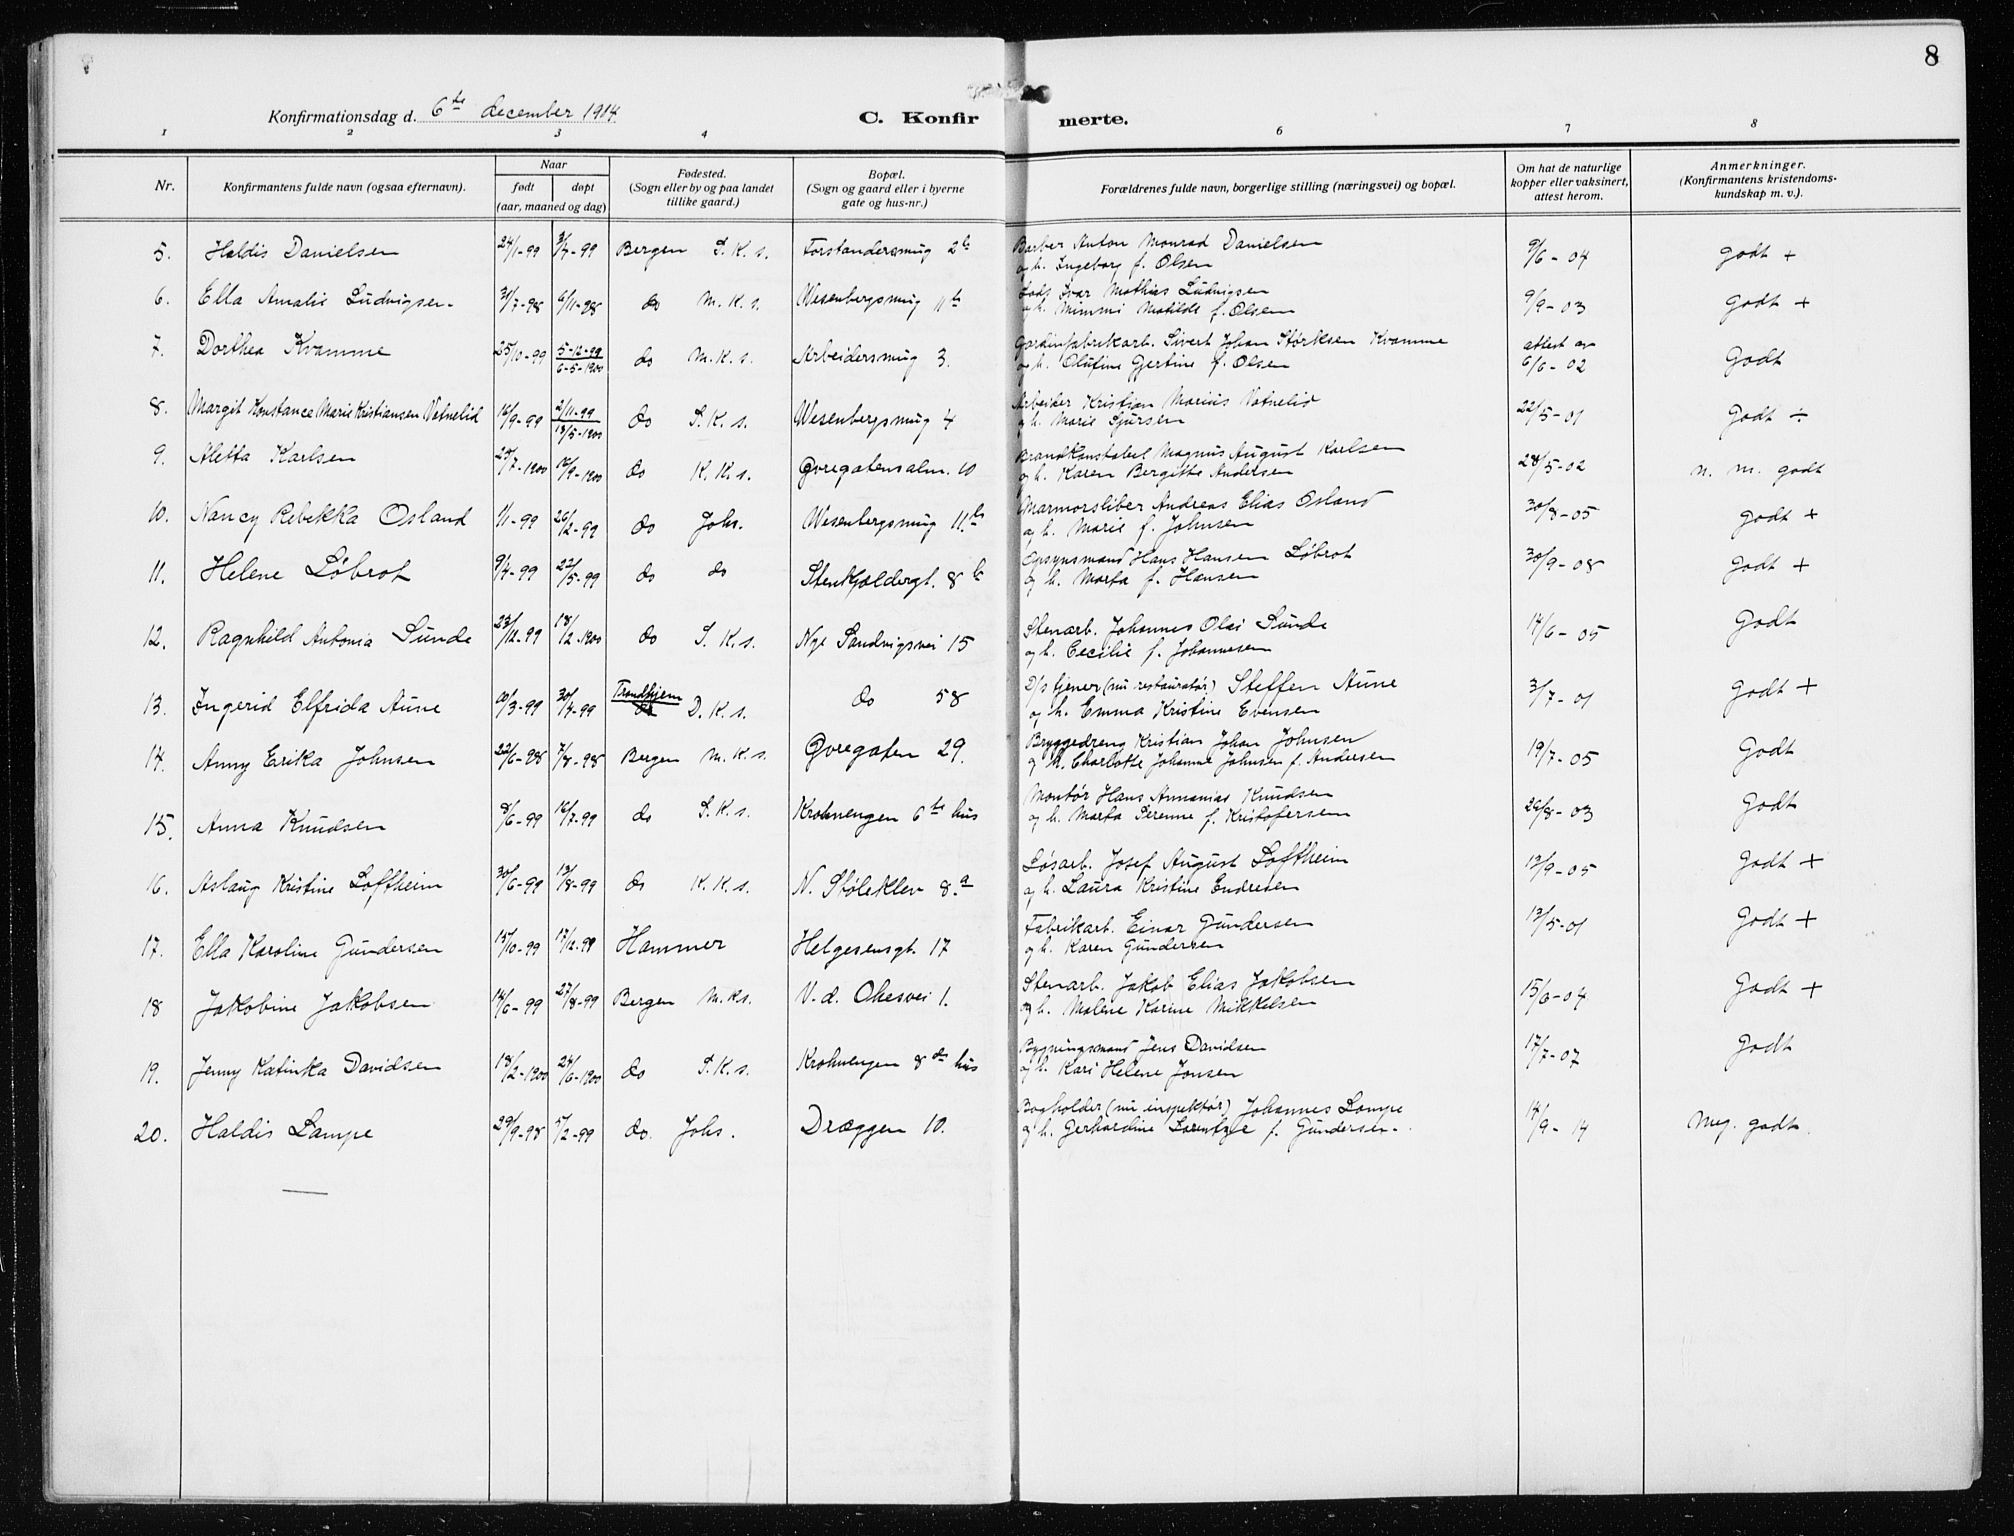 8
Konfirmationsdag d. 6te december 1914
C. Konfir merte.
1 2 3 4 6 7 8
Nr. Konfirmantens fulde navn (ogsaa efternavn). Naar født døpt (aar, maaned og dag) Fødested. (Sogn eller by og paa landet tillike gaard.) Bopæl. (Sogn og gaard eller i byerne gate og hus-nr.) Forældrenes fulde navn, borgerlige stilling (næringsvei) og bopæl. Om hat de naturlige kopper eller vaksinert, attest herom. Anmerkninger. (Konfirmantens kristendoms-kundskap m. v.).
5. Haldis Danielsen 24/1-99 3/4-99 Bergen S. K. s. Forstandersmug 2b Barber Anton Monrad Danielsen 9/6-04 Godt +
og h. Ingeborg f. Olsen
6. Ella Amalie Ludvigsen 31/7-98 6/11-98 do M. K. s. Wesenbergsmug 11b Lods Ivar Mathias Ludvigsen 9/9-03 Godt +
og h. Mimmi Matilde f. Olsen
7. Dorthea Kvamme 25/10-99 5-12-99 6-5-1900 do M. K. s. Arbeidersmug 3. Gardinfabrikarb. Sivert Johan Størksen Kvamme attest av 6/6-02 Godt
og h. Olufine Gjertine f. Olsen
8. Margit Konstance Marie Kristiansen Vatnelid 16/9-99 2/11-99 13/5-1900 do S. K. s. Wesenbergsmug 4 Arbeider Kristian Marius Vatnelid 22/5-01 Godt ÷
og h. Marie Sjursen
9. Aletta Karlsen 25/7-1900 16/9-1900 do K. K. s. Øvregatensalm. 10 Brandkonstabel Magnus August Karlsen 28/5-02 n. m. godt
og h. Karen Bergitte Andersen
10. Nancy Rebekka Osland 1/1-99 26/2-99 do Johs. Wesenbergsmug 11b Marmorsliber Andreas Elias Osland 30/8-05 Godt +
og h. Marie f. Johnsen
11. Helene Løbrot 9/4-99 22/5-99 do do Stenkjeldergt. 8b Opsynsmand Hans Hansen Løbrot 30/9-08 Godt +
og h. Marta f. Hansen
12. Ragnhild Antonia Sunde 23/12-99 18/2-1900 do S. K. s. Nye Sandvigsvei 15 Stenarb. Johannes Olai Sunde 14/6-05 Godt
og h. Cecilie f. Johannesen
13. Ingerid Elfrida Aune 10/3-99 30/4-99 Trondhjem D. K. s. do 58 D/s tjener (nu restauratør) Steffen Aune 3/7-01 Godt +
og h. Emma Kristine Evensen
14. Anny Erika Johnsen 22/6-98 7/8-98 Bergen M. K. s. Øvregaten 29. Bryggedreng Kristian Johan Johnsen 19/7-05 Godt
og h. Charlotte Johanne Johnsen f. Andersen
15. Anna Knudsen 8/6-99 16/7-99 do S. K. s. Krohnengen 6te hus Montør Hans Annanias Knudsen 26/8-03 Godt
og h. Marta Serenne f. Kristofersen
16. Aslaug Kristine Loftheim 30/6-99 13/8-99 do K. K. s. N. Stølekler 8a Løsarb. Josef August Loftheim 13/9-05 Godt +
og h. Laura Kristine Endresen
17. Ella Karoline Gundersen 15/10-99 17/12-99 Hammer Helgesensgt. 17 Fabrikarb. Einar Gundersen 13/5-01 Godt +
og h. Karen Gundersen
18 Jakobine Jakobsen 14/6-99 27/8-99 Bergen M. Ks. V. d. Ohesvei 1. Stenarb. Jakob Elias Jakobsen 15/6-04 Godt +
og h. Malene Karine Mikkelsen
19. Jenny Katinka Davidsen 18/2-1900 24/6-1900 do S. K. s. Krohnengen 8de hus Bygningsmand Jens Davidsen 17/7-07 Godt
og h. Kari Helene Jonsen
20. Haldis Lampe 29/9-98 5/2-99 do. Johs. Dræggen 10. Bogholder (nu inspektør) Johannes Lampe 14/9-14 Meg. godt
og h. Gerhardine Lorentze f. Gundersen